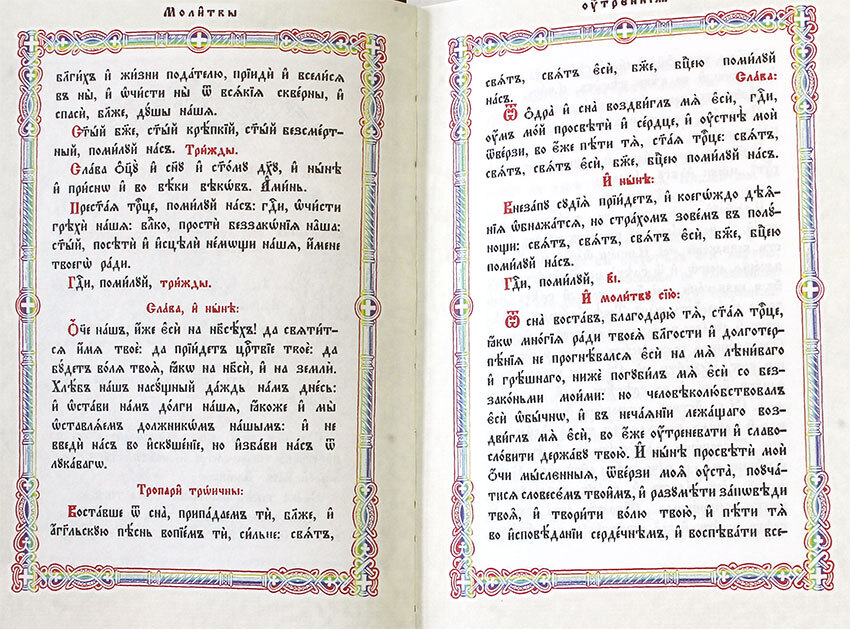 Моли́твы
бл҃ги́хъ и҆ жи́зни пода́телю, прїидѝ и҆ всели́сѧ
въ ны̀, и҆ ѡ҆чи́сти ны̀ ѿ всѧ́кїѧ скве́рны, и҆
спасѝ, бл҃же, ду́шы на́шѧ.
Ст҃ы́й бж҃е, ст҃ы́й крѣ́пкїй, ст҃ы́й безсме́рт-
ный, поми́луй на́съ. Три́жды.
Сла́ва ѻ҆ц҃ꙋ̀ и҆ сн҃ꙋ и҆ ст҃о́мꙋ дх҃ꙋ, и҆ ны́нѣ
и҆ при́снѡ и҆ во вѣ́ки вѣкѡ́въ. А҆ми́нь.
Прест҃а́ѧ трⷪ҇це, поми́лꙋй на́съ: гдⷭ҇и, ѡ҆чи́сти
грѣхѝ на́шѧ: влⷣко, простѝ беззакѡ́нїѧ на̑ша:
ст҃ы́й, посѣтѝ и҆ и҆сцѣлѝ не́мѡщи на́шѧ, и҆́мене
твоегѡ̀ ра́ди.
Гдⷭ҇и, поми́лꙋй, три́жды.
Сла́ва, и҆ ны́нѣ:
Ѻ҆́че на́шъ, и҆́же є҆сѝ на нб҃сѣ́хъ! да свѧти́т-
сѧ и҆́мѧ твоѐ: да прїи́детъ црⷭ҇твїе твоѐ: да
бꙋ́детъ во́лѧ твоѧ̀, ꙗ҆́кѡ на нб҃сѝ, и҆ на землѝ.
Хлѣ́бъ на́шъ насꙋ́щный да́ждь на́мъ дне́сь:
и҆ ѡ҆ста́ви на́мъ до́лги на́шѧ, ꙗ҆́коже и҆ мы̀
ѡ҆ставлѧ́емъ должникѡ́мъ на́шымъ: и҆ не
введѝ на́съ во и҆скꙋше́нїе, но и҆зба́ви на́съ ѿ
лꙋка́вагѡ.
Тропарѝ трⷪ҇ичны:
Воста́вше ѿ сна̀, припа́даемъ тѝ, бл҃же, и҆
а҆́гг҃льскꙋю пѣ́снь вопїе́мъ тѝ, си́льне: свѧ́тъ,
ᲂу҆́треннїѧ.
свѧ́тъ, свѧ́тъ є҆сѝ, бж҃е, бцⷣею поми́лꙋй
на́съ.
Сла́ва:
Ѿ ѻ҆дра̀ и҆ сна̀ воздви́глъ мѧ̀ є҆сѝ, гдⷭ҇и,
ᲂу҆́мъ мо́й просвѣтѝ и҆ се́рдце, и҆ ᲂу҆стнѣ̀ моѝ
ѿве́рзи, во є҆́же пѣ́ти тѧ̀, ст҃а́ѧ трⷪ҇це: свѧ́тъ,
свѧ́тъ, свѧ́тъ є҆сѝ, бж҃е, бцⷣею поми́лꙋй на́съ.
И҆ ны́нѣ:
Внеза́пꙋ сꙋдїѧ̀ прїи́детъ, и҆ коегѡ́ждо дѣѧ̑-
нїѧ ѡ҆бнажа́тсѧ, но стра́хомъ зове́мъ въ полꙋ́-
нощи: свѧ́тъ, свѧ́тъ, свѧ́тъ є҆сѝ, бж҃е, бцⷣею
поми́лꙋй на́съ.
Гдⷭ҇и, поми́лꙋй, в҃і.
И҆ моли́твꙋ сїю̀:
Ѿ сна̀ воста́въ, благодарю̀ тѧ̀, ст҃а́ѧ трⷪ҇це,
ꙗ҆́кѡ мно́гїѧ ра́ди твоеѧ̀ бл҃гости и҆ долготер-
пѣ́нїѧ не прогнѣ́валсѧ є҆сѝ на мѧ̀ лѣни́ваго
и҆ грѣ́шнаго, нижѐ погꙋби́лъ мѧ̀ є҆сѝ со без-
зако́ньми мои́ми: но человѣколю́бствовалъ
є҆сѝ ѡ҆бы́чнѡ, и҆ въ неча́ѧнїи лежа́щаго воз-
дви́глъ мѧ̀ є҆сѝ, во є҆́же ᲂу҆́треневати и҆ славо-
сло́вити держа́вꙋ твою̀. И҆ ны́нѣ просвѣтѝ моѝ
ѻ҆́чи мы́сленныѧ, ѿве́рзи моѧ̑ ᲂу҆ста̀, поꙋча́-
тисѧ словесє́мъ твои̑мъ, и҆ разꙋмѣ́ти за́пѡвѣди
твоѧ̑, и҆ твори́ти во́лю твою̀, и҆ пѣ́ти тѧ̀
во и҆сповѣ́данїи серде́чнѣмъ, и҆ воспѣва́ти все-